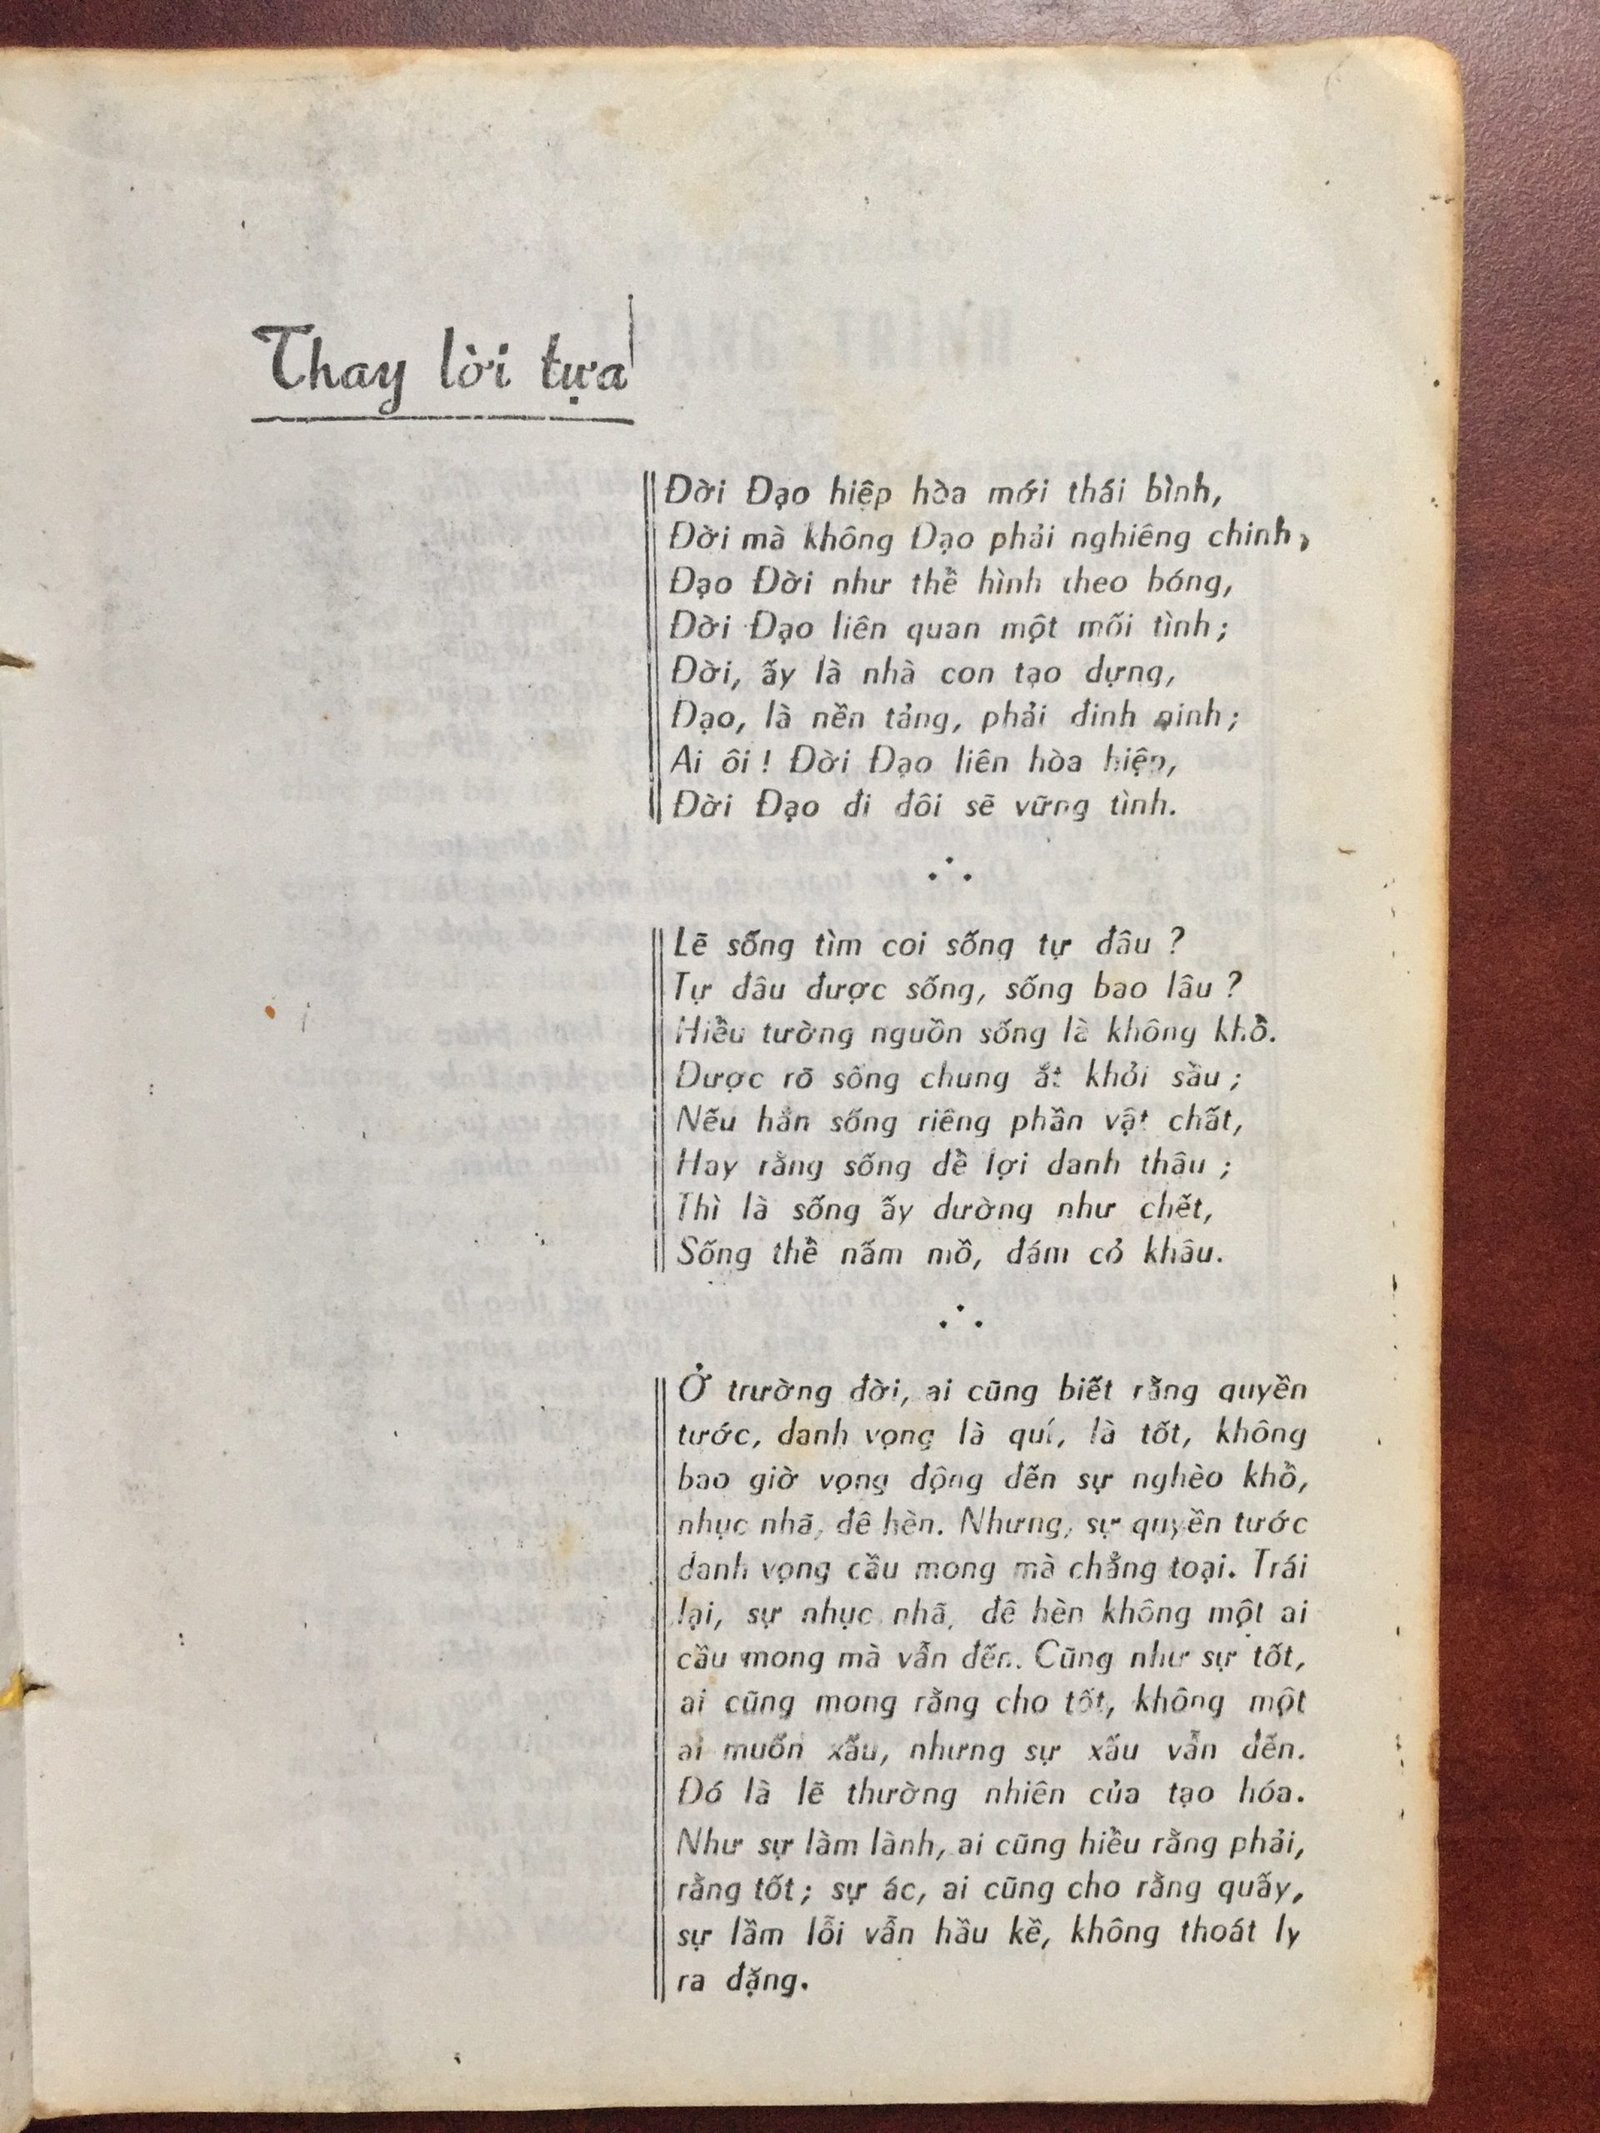 Thay lời tựa
Đời Đạo hiệp hòa mới thái bình,
Đời mà không Đạo phải nghiêng chinh,
Đạo Đời như thể hình theo bóng,
Đời Đạo liên quan một mối tình;
Đời, ấy là nhà con tạo dựng,
Đạo, là nền tảng, phải đinh ninh;
Ai ôi! Đời Đạo liên hòa hiệp,
Đời Đạo đi đôi sẽ vững tình.
Lẽ sống tìm coi sống tự đâu?
Tự đâu được sống, sống bao lâu?
Hiểu tường nguồn sống là không khổ.
Được rõ sống chung ắt khỏi sầu;
Nếu hẳn sống riêng phần vật chất,
Hay rằng sống để lợi danh thâu;
Thì là sống ấy dường như chết,
Sống thể nấm mồ, đám cỏ khâu.
Ở trường đời, ai cũng biết rằng quyền
tước, danh vọng là quí, là tốt, không
bao giờ vọng động đến sự nghèo khổ,
nhục nhã, đê hèn. Nhưng, sự quyền tước
danh vọng cầu mong mà chẳng toại. Trái
lại, sự nhục nhã, đê hèn không một ai
cầu mong mà vẫn đến. Cũng như sự tốt,
ai cũng mong rằng cho tốt, không một
ai muốn xấu, nhưng sự xấu vẫn đến.
Đó là lẽ thường nhiên của tạo hóa.
Như sự làm lành, ai cũng hiểu rằng phải,
rằng tốt; sự ác, ai cũng cho rằng quấy,
sự lầm lỗi vẫn hầu kề, không thoát ly
ra đặng.